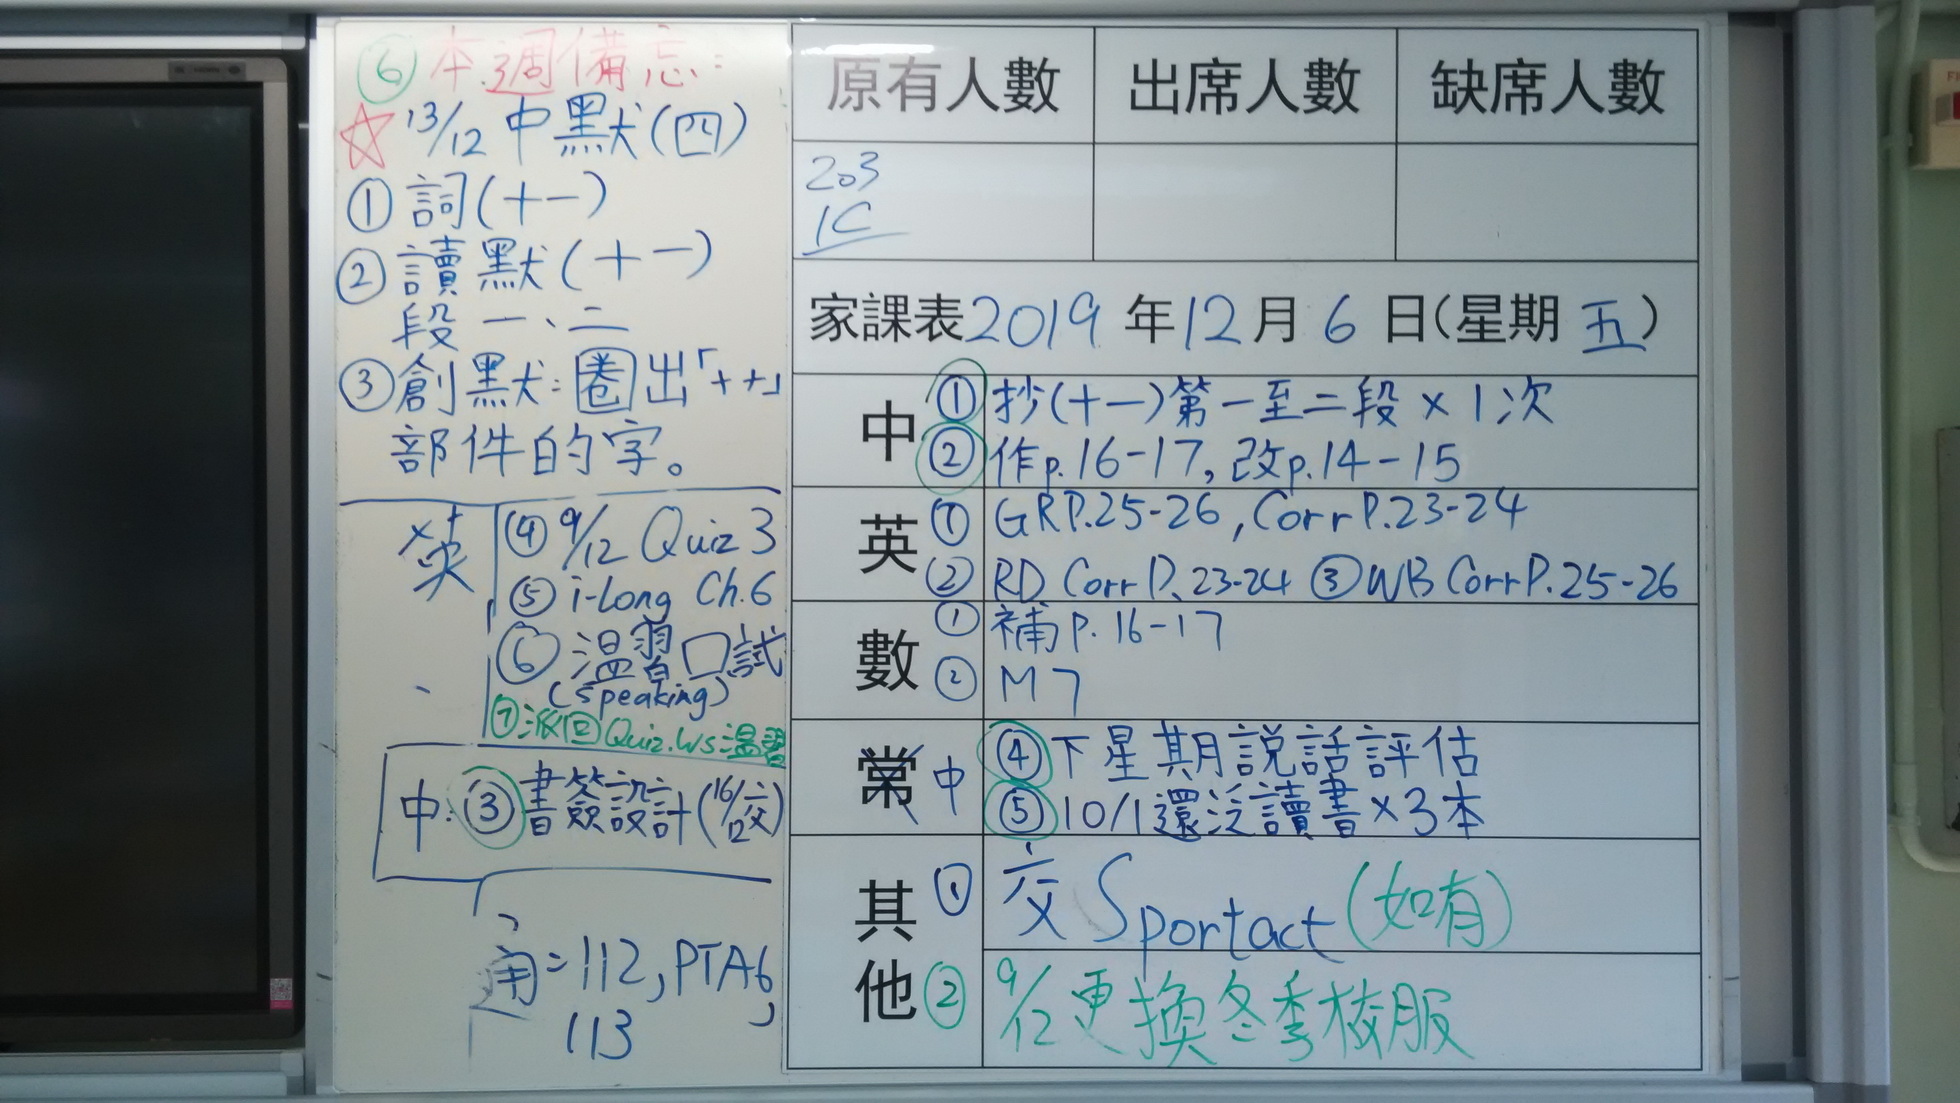 ⑥本週備忘:
☆13/12 中默(四)
①詞(十一)
②讀默(十一)
段一、二
③創默:圈出「++」
部件的字。
英
④9/12 Quiz 3
⑤i-Long Ch.6
⑥溫習口試
(speaking)
⑦派回Quiz.WS溫習
中:③書簽設計(16/12交)
=112,PTA6,
113
原有人數 出席人數 缺席人數
203
1C
家課表2019年12月6日(星期五)
中
①抄(十一)第一至二段×1次
②作p.16-17,改p.14-15
英
①GRP.25-26,CorrP.23-24
②RD CorrP.23-24 ③WB CorrP.25-26
數
①補p.16-17
②M7
常中
④下星期說話評估
⑤10/1還泛讀書×3本
其他
①交Sportact(如有)
②9/12更換冬季校服